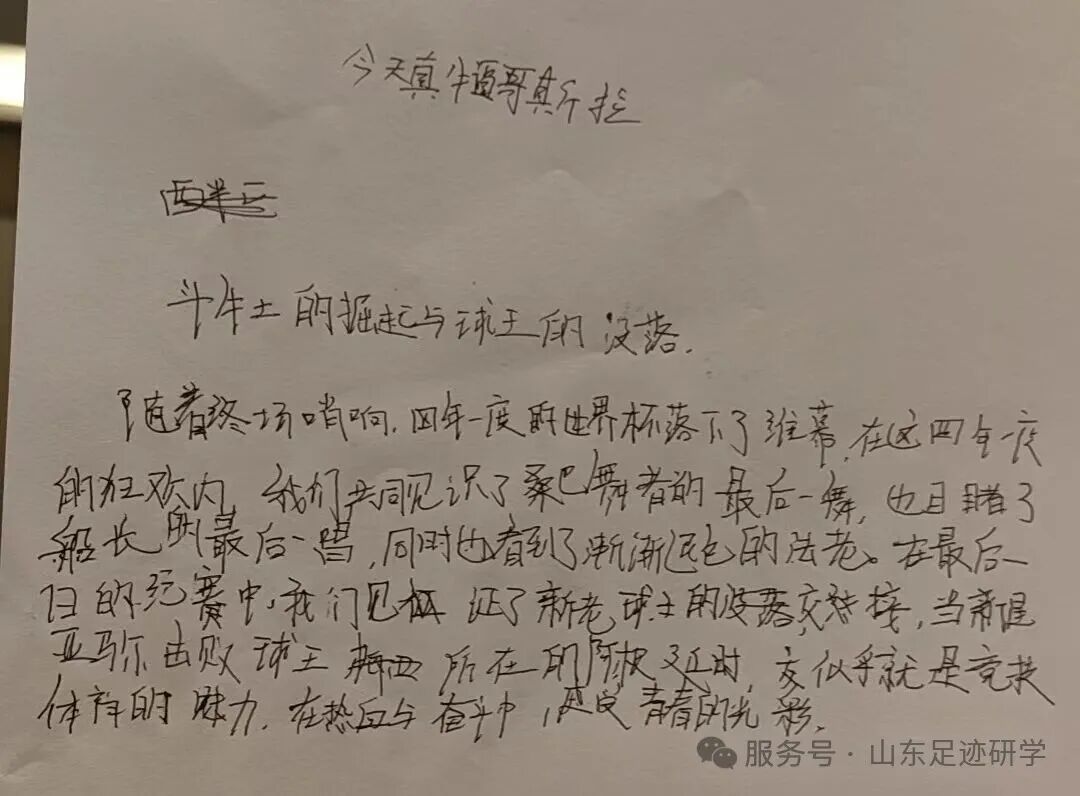 今天真牛逼哥斯拉
斗牛士的掘起与球王的没落.
随着终场哨响,四年一度的世界杯落下了维幕,在这四年一度
的狂欢内,我们共同见识了桑巴舞者的最后一舞,也目睹了
船长的最后一唱,同时也看到了渐渐远包的法老。在最后一
日的纪赛中,我们见证了新老球王的交接,当新星
亚马尔击败球王所在的阿根廷时,这似乎就是竞技
体育的魅力.在热血与奋斗中,青春的光彩.
服务号·山东足迹研学